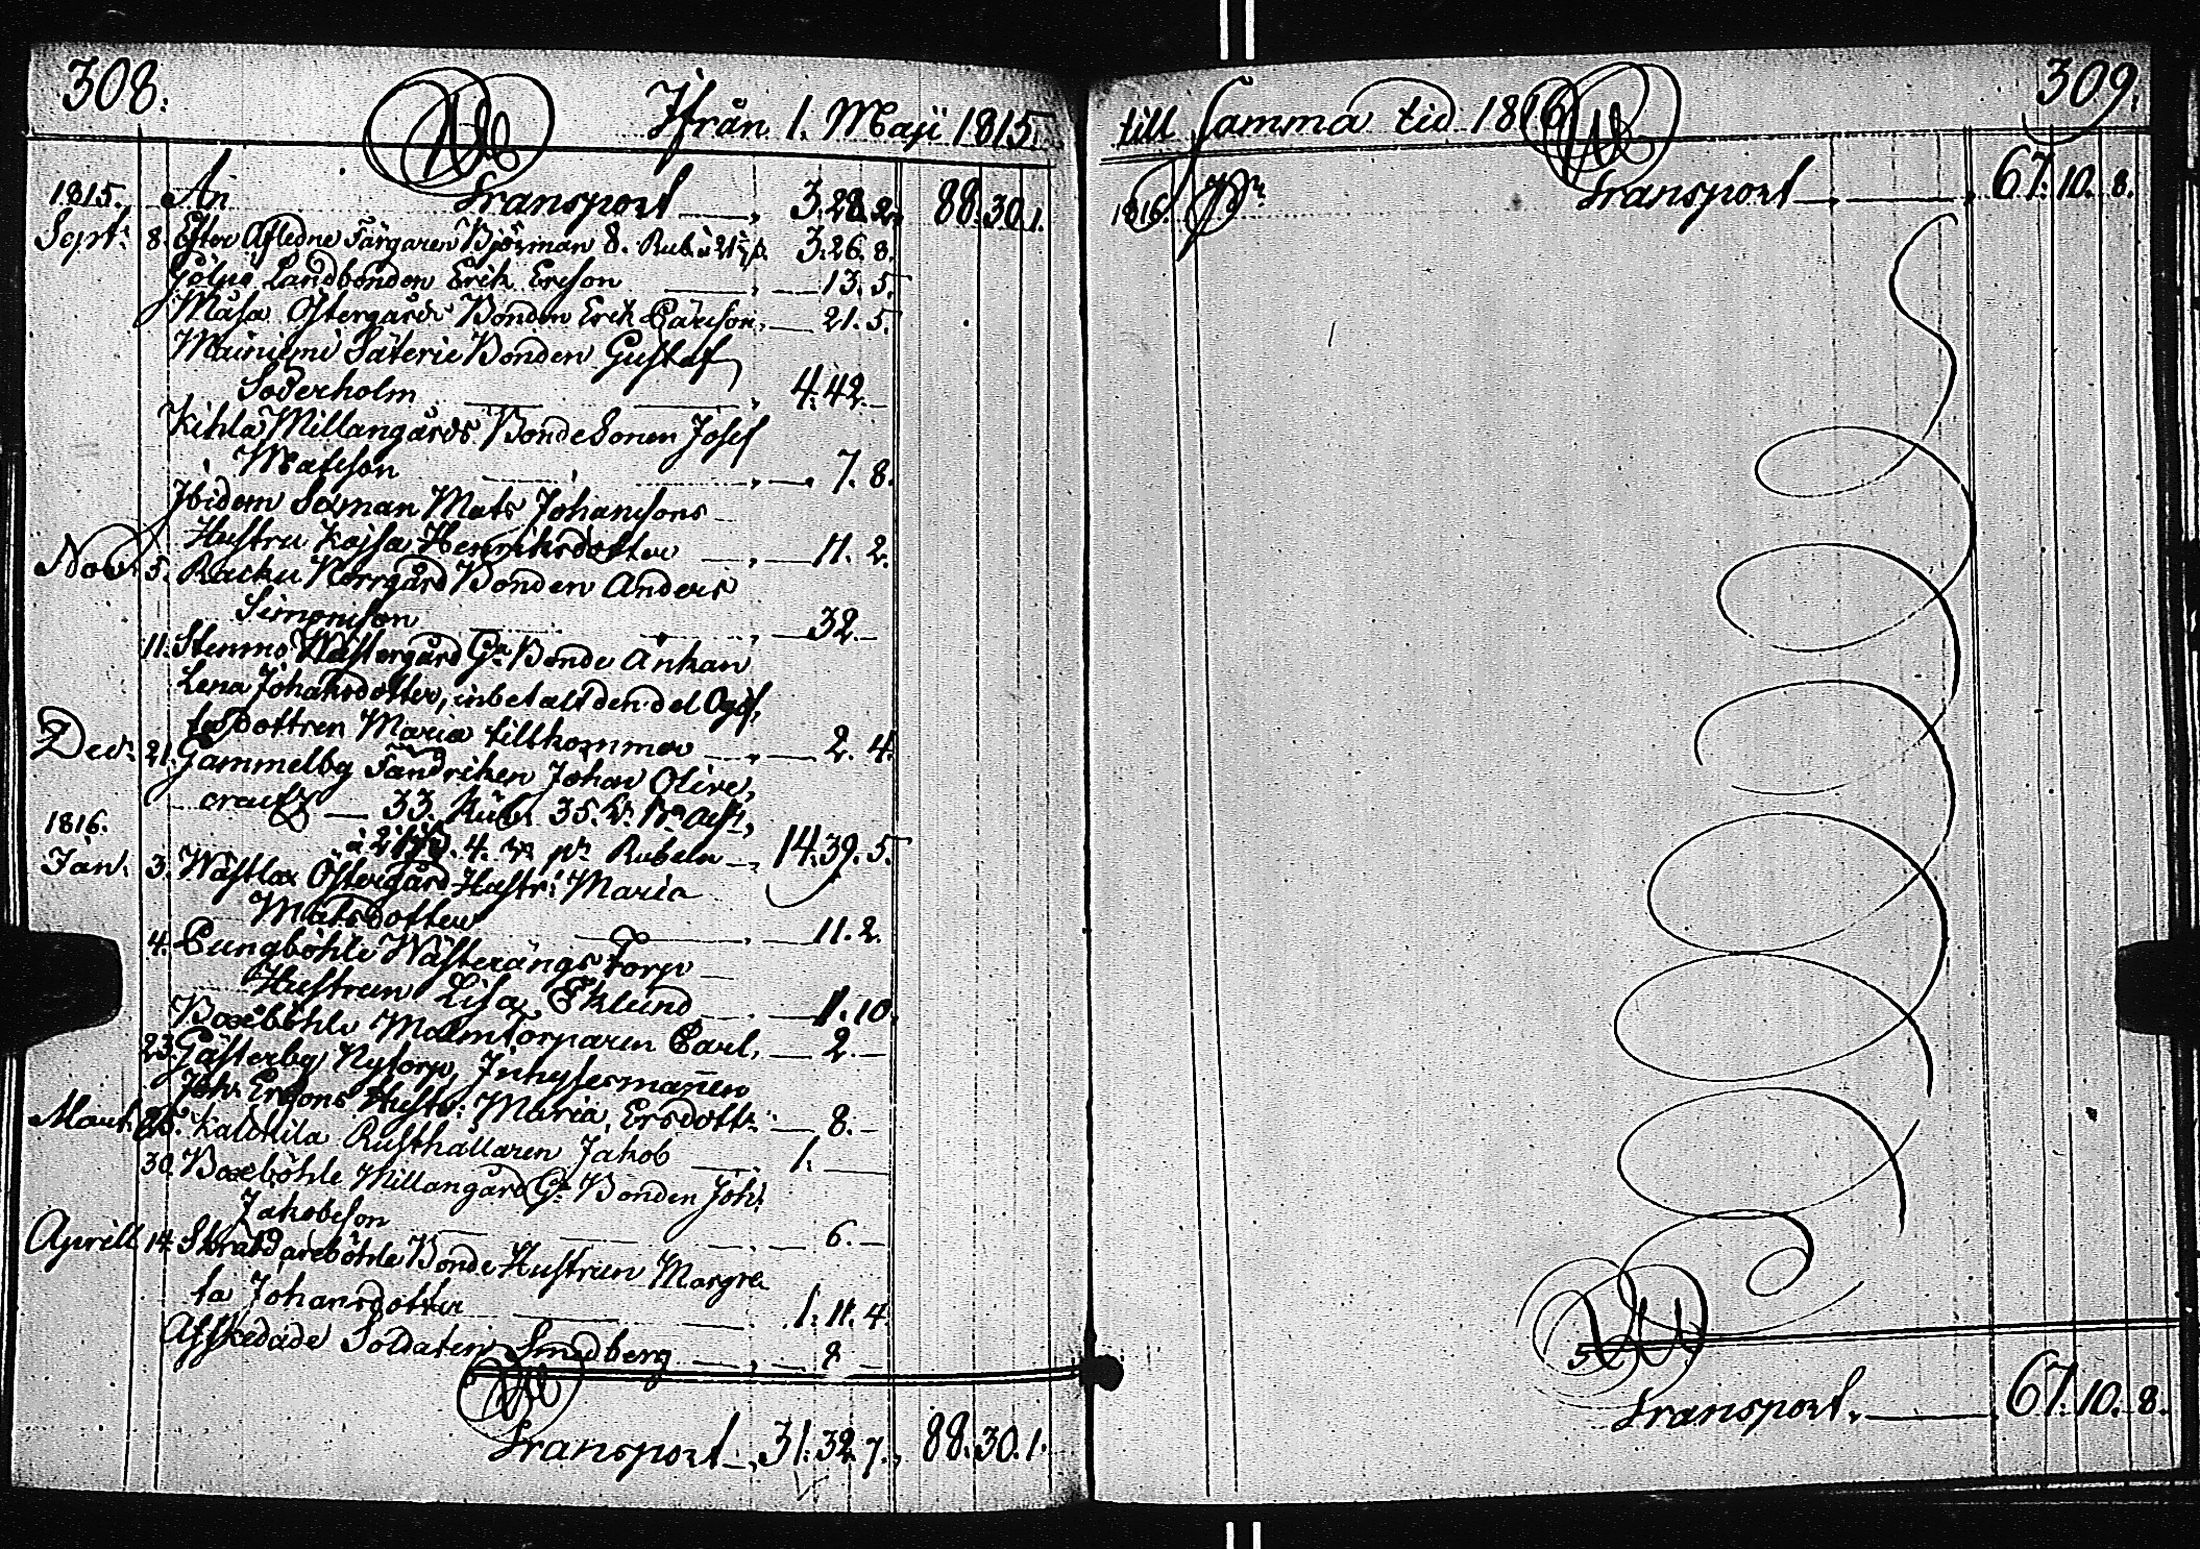 308.
Ifrån 1. Maji 1815.
1815. An Transport 3. 28. 2. 88. 30. 1.
Sept: 8. Efter Afledne Färgaren Björman 8. Rub. à 21 3. 26. 8.
Landbonden Erik Ersson 13. 5.
Måsa Östergårds Bonden Erik Carlson, 21. 5.
Mainiemi Säterie Bonden Gustaf
Söderholm 4. 42.
Kihla Millangårds Bonde Sonen Josef
Matsson 7. 8.
Ibidem Sexman Mats Johansons
Hustru Kajsa Henriksdotter 11. 2.
Nov: 5. Backu Norrgård Bonden Anders
Simonsson 32.
11. Stenmo Wästergård Gla Bonde Änkan
Lena Johansdotter, inbetalt den del Ogif,
ta Dottren Maria tillkommer 2. 4.
Dec: 21. Gammelby Fändriken Johan Olive,
creutz 33. Rub.
1816. à 4. pr Rubeln 14. 39. 5.
Jan: 3. Wästlax Östergård Hustr: Maria
Matsdotter 11. 2.
4. Pungböhle Wästerängs Torp
Hustrun Lisa Eklund 1. 10.
Boxeböhle Malmtorparen Carl, 2.
23. Gästerby Nytorp, Inhysesmannen
Joh. Ersons Hustr: Maria, Ersdottr: 8.
Mart: 25. Kalkkila Rusthållaren Jakob 1.
30. Boxeböhle Millangård Gl. Bonden Joh:
Jakobsson 6.
Aprill 14. Skräddareböhle Bonde Hustrun Margre
ta Johansdotter 1. 11. 4.
Afskedade Soldaten Smedberg 2
Transport 31. 32. 7. 88. 30. 1.
309.
till samma tid 1816
1816. Pr. Transport 67. 10. 8.
Transport. 67. 10. 8.